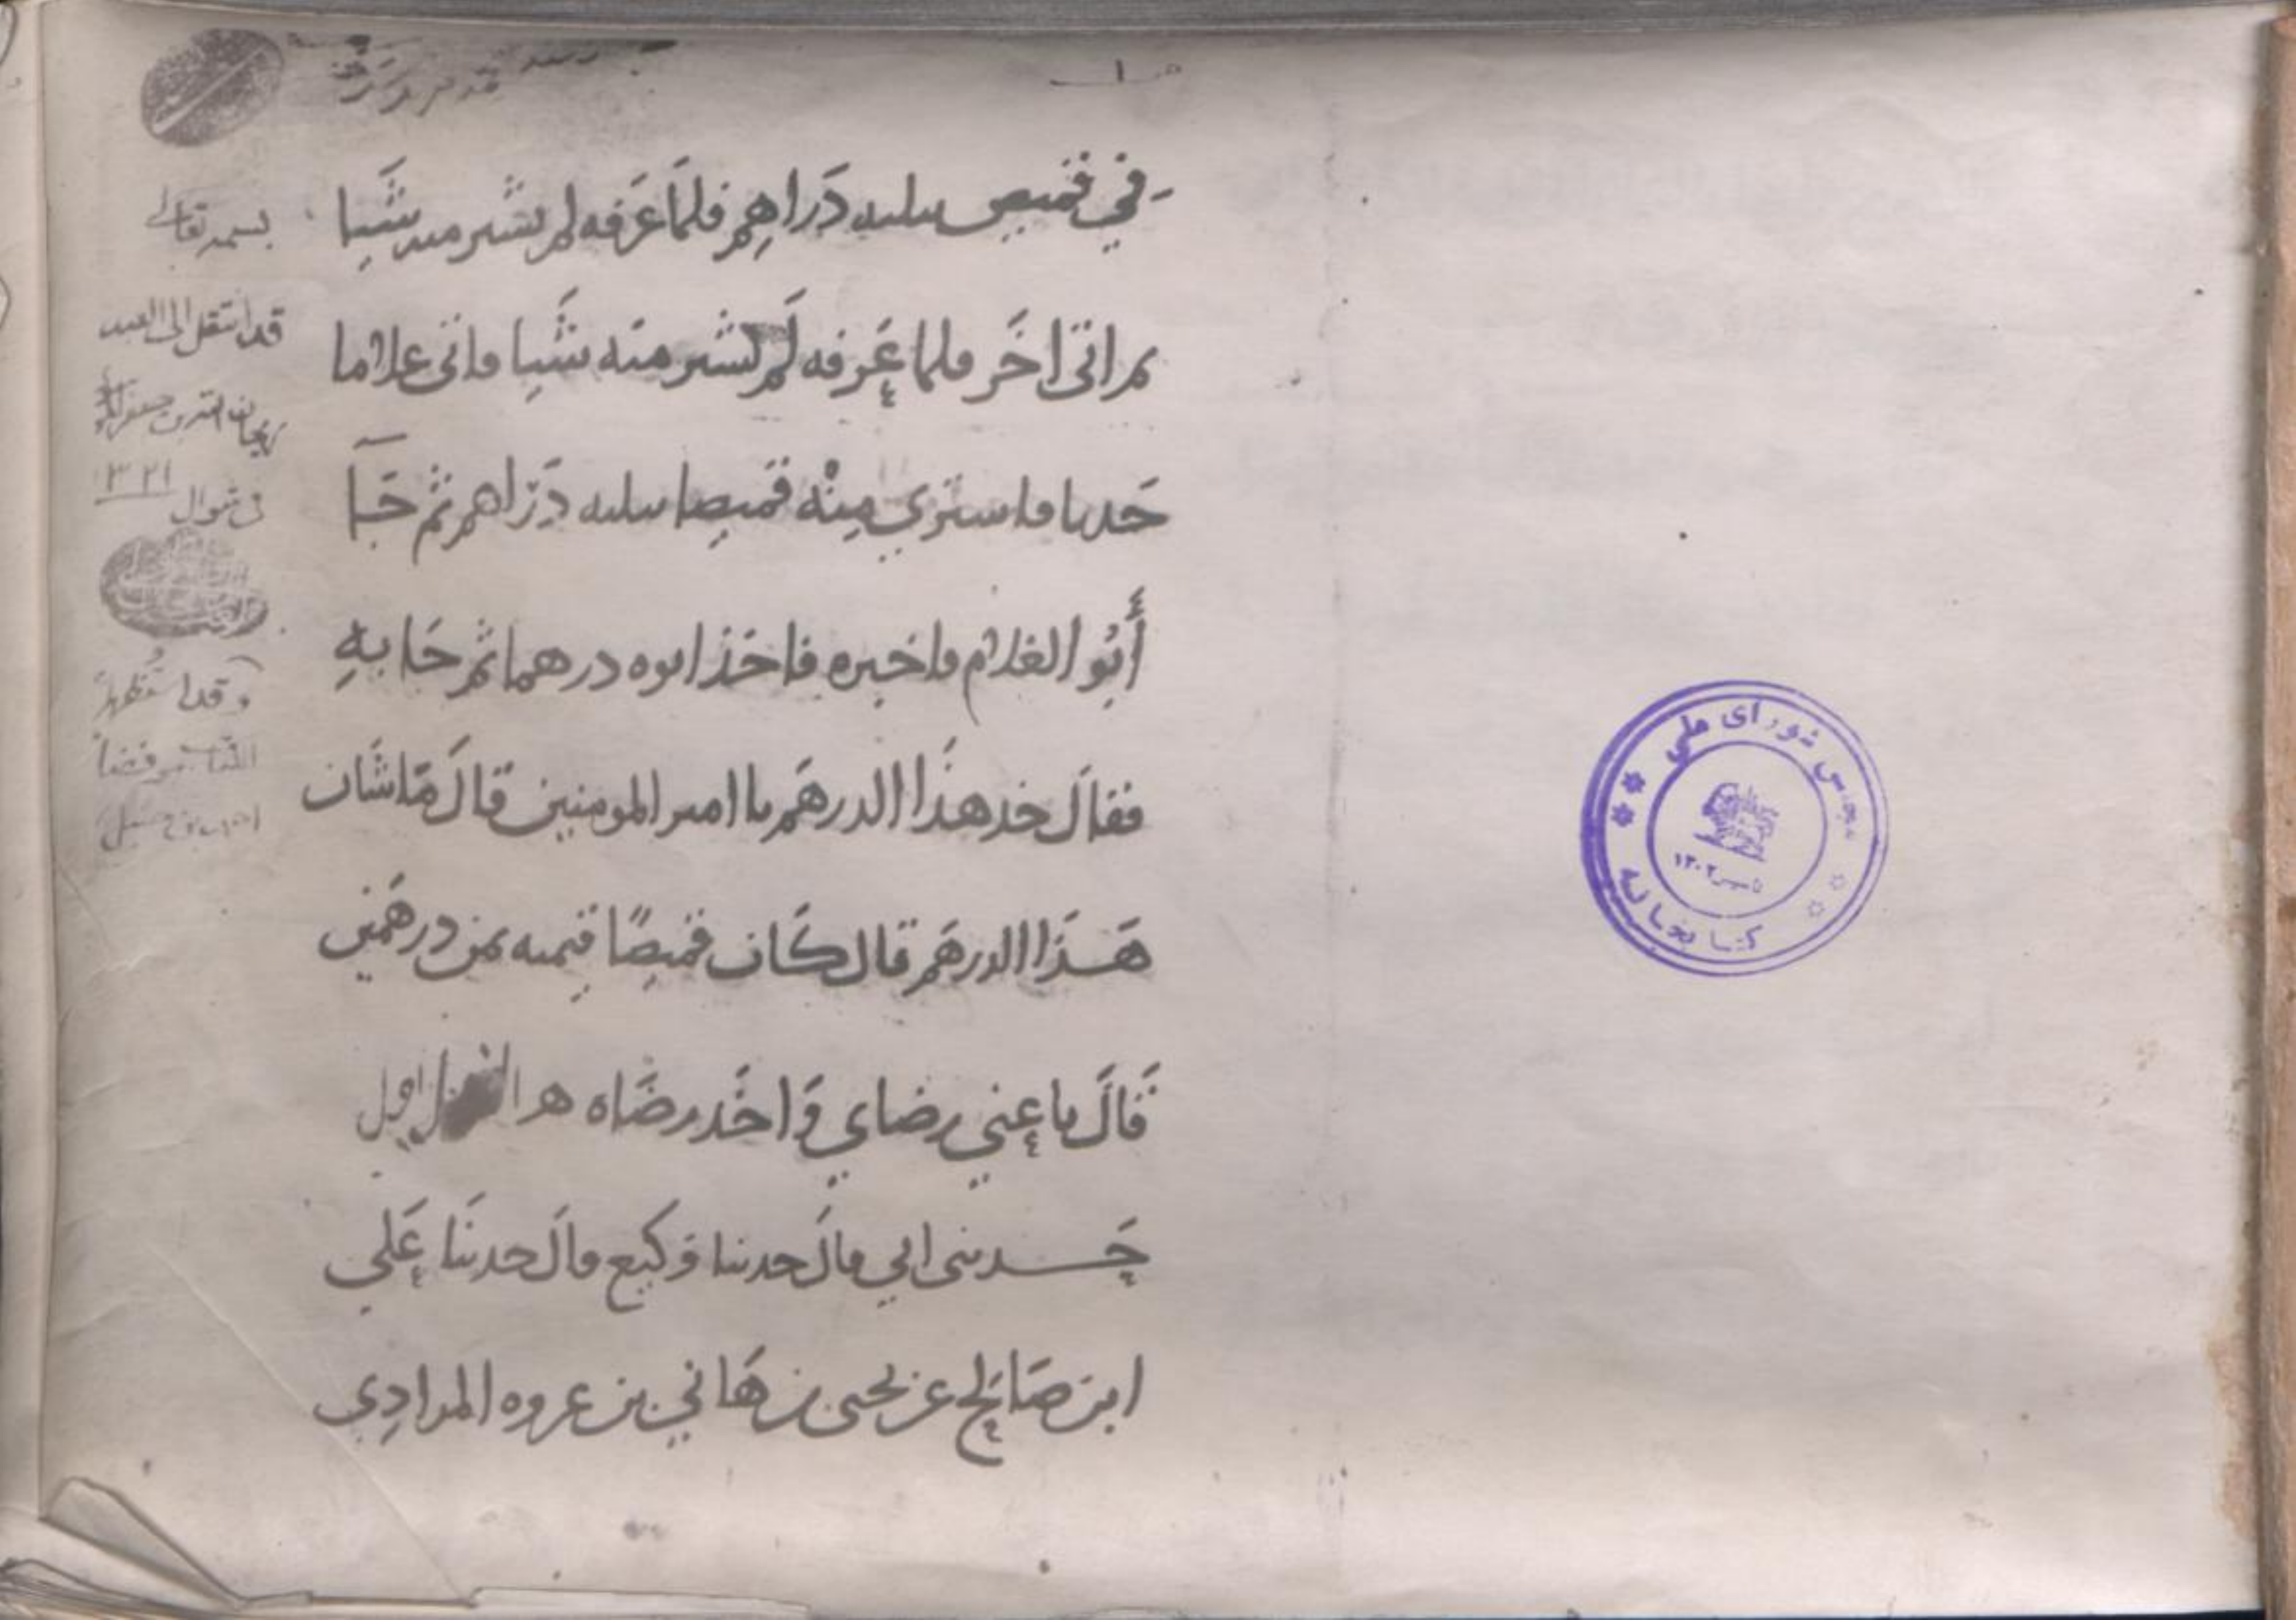 في قميص بثلثه دَراهِم فلمَّا عَرَفه لم يشتر منه شَيا
ثم اتى اخَر فلما عَرفه لَم يشتر منه شَيا فاتى غلاما
حَدثا فاشتري مِنْه قميصا بثلثه دَرَاهم ثم جَآ
أَبُو الغلام فاخبره فاخَذ ابوه درهما ثم جَا بهِ
فقالَ خذ هذَا الدرهَم يا امير المومنين قالَ مَا شَان
هَذَا الدرهَم قال كَان قميصًا قيمته ثمن درهَمين
قَالَ باعني رضاي وَاخَذ رضَاه
حَدثنى ابي قالَ حدثنا وَكيع قالَ حدثنَا عَلي
ابن صَالح عن يحيى بن هَاني بن عروه المرادِي
بسمه تعالى
قد انتقل الى العبد
فى شوال ١٣٢١
و قد
مجلس شورای ملی
کتابخانه
تاسیس ١٣٠٢
١